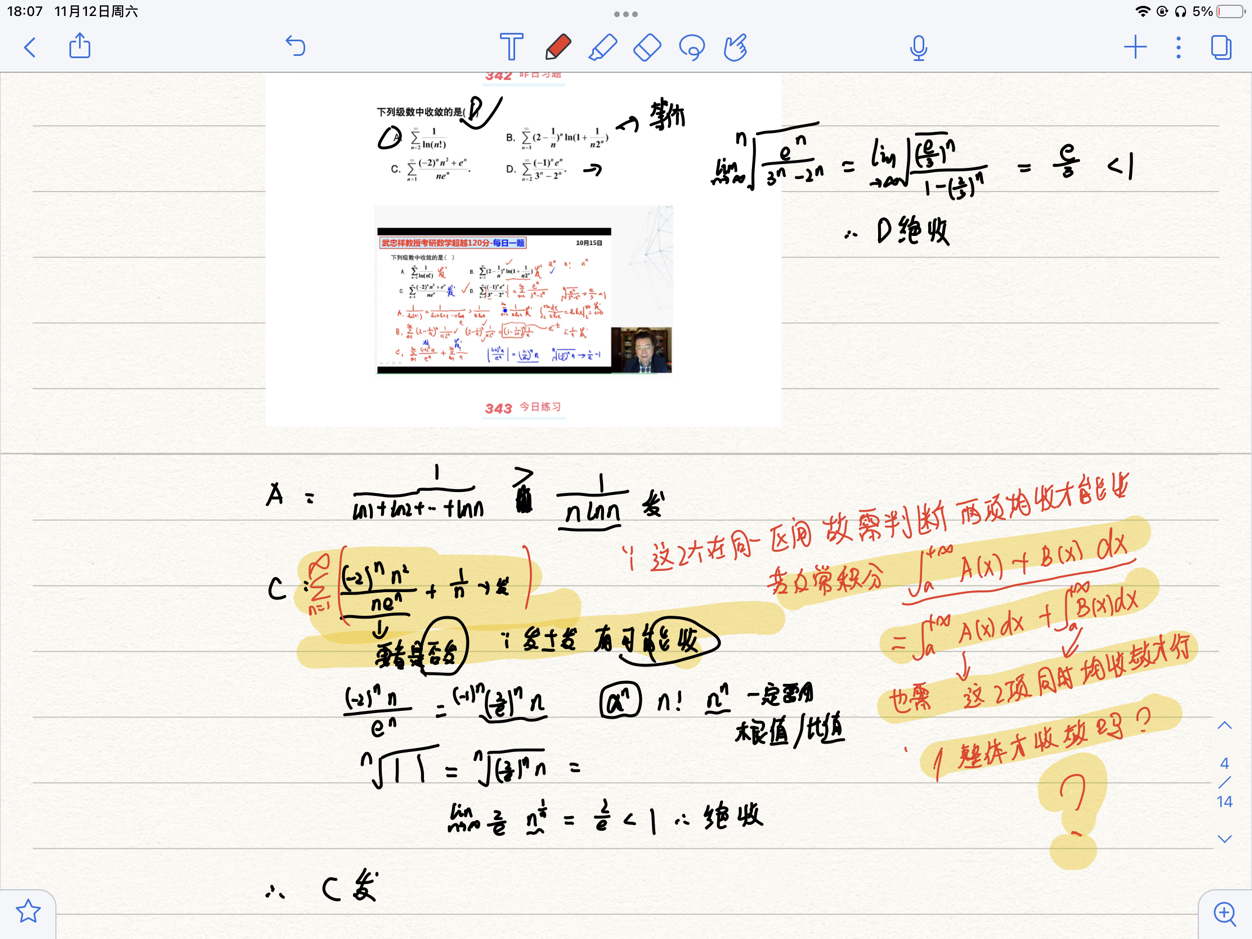 18:07 11月12日周六
5%
342 昨日习题
下列级数中收敛的是( D )
A. $\sum_{n=2}^{\infty}\frac{1}{\ln(n!)}$
B. $\sum_{n=1}^{\infty}(2-\frac{1}{n})^n\ln(1+\frac{1}{n2^n})$ → 等价
C. $\sum_{n=1}^{\infty}\frac{(-2)^n n^2+e^n}{ne^n}$.
D. $\sum_{n=2}^{\infty}\frac{(-1)^n e^n}{3^n-2^n}$. →
$\lim_{n\to\infty}\sqrt[n]{\frac{e^n}{3^n-2^n}} = \lim_{\to\infty}\sqrt[n]{\frac{(\frac{e}{3})^n}{1-(\frac{2}{3})^n}} = \frac{e}{3} < 1$
∴ D绝收
武忠祥教授考研数学超越120分-每日一题
10月15日
下列级数中收敛的是( )
343 今日练习
A = $\frac{1}{\ln1+\ln2+\cdots+\ln n}$ > $\frac{1}{n\ln n}$ 发
C: $\sum_{n=1}^{\infty}\left(\frac{(-2)^n n^2}{ne^n}+\frac{1}{n}\to发\right)$
∵ 这2个在同一区间 故需判断 两项均收才能收
若反常积分 $\int_a^{+\infty} A(x)+B(x)\,dx$
= $\int_a^{+\infty} A(x)dx + \int_a^{+\infty} B(x)dx$
也需 这2项同时均收敛才行
整体才收敛吗?
?
要看是否发 ∵ 发±发 有可能收
$\frac{(-2)^n n}{e^n} = (-1)^n(\frac{2}{e})^n n$
$a^n$ n! $n^n$ 一定要用
根值/比值
$\sqrt[n]{||} = \sqrt[n]{(\frac{2}{e})^n n}$ =
$\lim_{n\to\infty}\frac{2}{e}\,n^{\frac{1}{n}} = \frac{2}{e} < 1$ ∴ 绝收
∴ C发
4
/
14